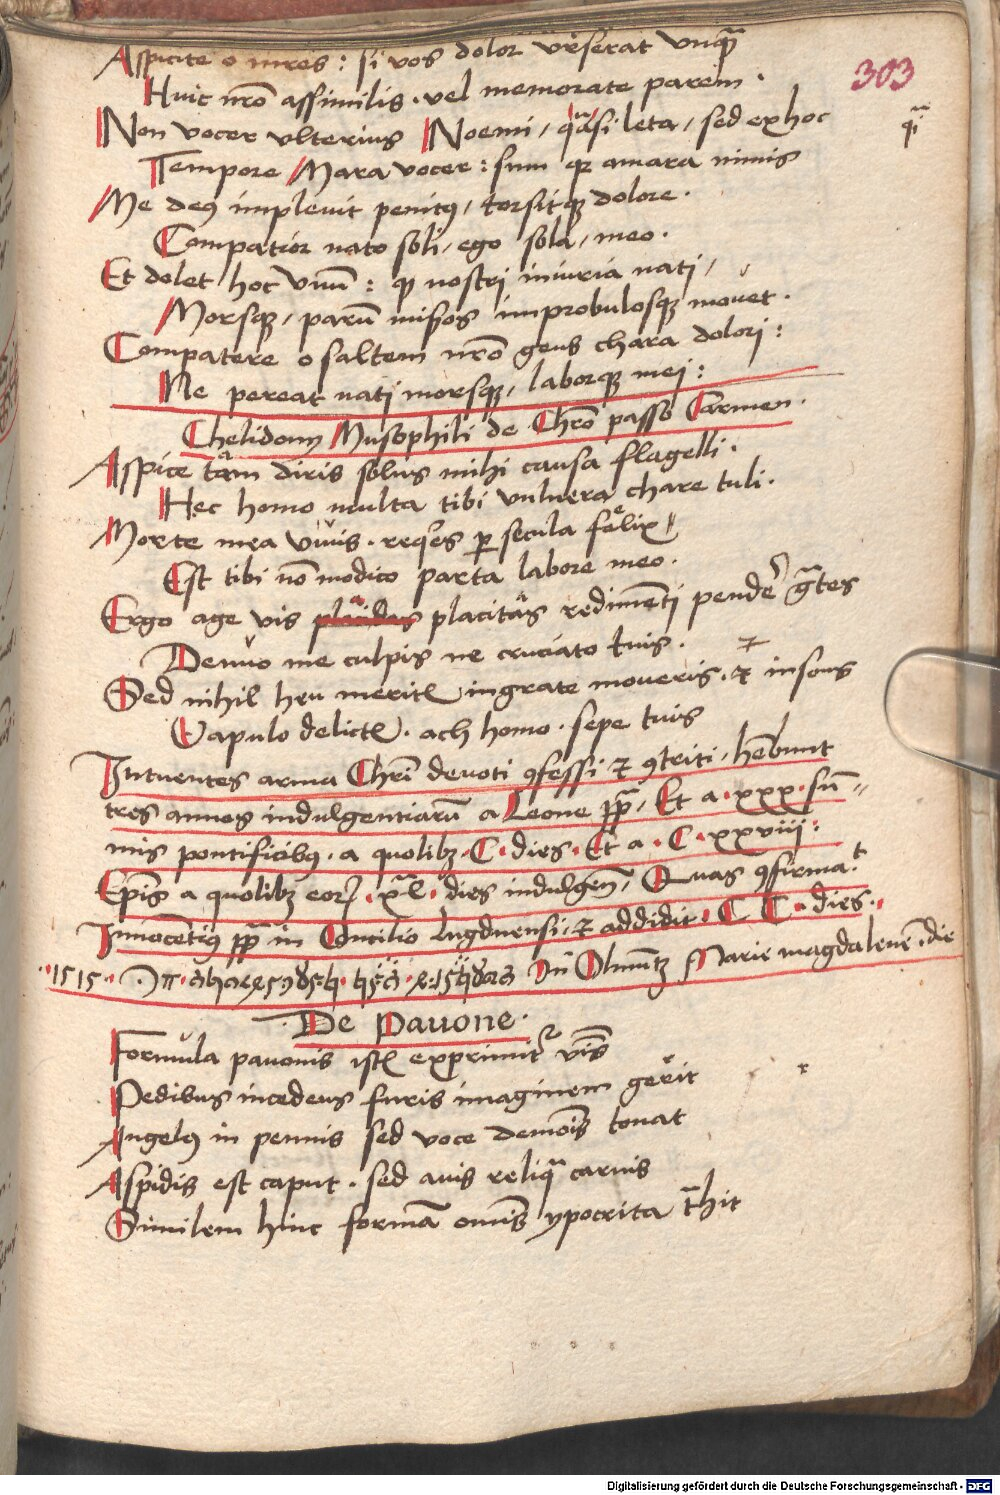 303
Aspicite o mr̄es : si vos dolor vrserat vnq̄
Huic nr̄o assimilis . vel memorate parem .
Non vocer vlterius Noemi / quasi leta / sed ex hoc
qi
Tempore Mara vocer : sum qz amara nimis
Me deꝰ impleuit penitꝰ / torsitqz dolore .
Compatior nato soli / ego sola / meo .
Et dolet hoc vnū : ꝙ nostri iniuria nati /
Morsqz / parū miseros improbulosqz mouet .
Compatere o saltem nr̄o gens chara dolori :
Ne pereat nati morsqz / laborqz mei :
Chelidonij Musophili de Chr̄o passo Carmen .
Aspice tām diris solus mihi causa flagelli .
Hec homo multa tibi vulnera chare tuli .
Morte mea viuis . reqͥes ꝑ secula felix
Est tibi nō modico parta labore meo .
Ergo age vis placitas redimēti pendeˀ gr̄tes
Denuo me culpis ne cruciato tuis .
Sed nihil heu meritꝭ ingrate moueris . ⁊ insons
Vapulo delictꝭ . ach homo . sepe tuis
Intuentes arma Chri̅ deuoti ꝯfessi ⁊ ꝯtriti / hēbunt
tres annos indulgentiarū a Leone pp̄ / Et a . xxx . sū=
mis pontificibꝰ . a quolibz . C . dies . Et a . C . xxviij :
Ep̄is a quolibz eorꝝ . xl . dies indulgen̄ / Quas ꝯfirmat
Innocētiꝰ pp̄ in Concilio Lugdunensi / ⁊ addidit . C C . dies .
1515 In Olmutz Marie magdalene die
De Pauone .
Formula pauonis istꝭ exprimitˀ vīs
Pedibus incedens furis imaginem gerit
Angelꝰ in pennis sed voce demoīs tonat
Aspidis est caput . sed auis reliq̄ carnis
Similem hinc formā omīs ypocrita tr̄hit
Digitalisierung gefördert durch die Deutsche Forschungsgemeinschaft - DFG